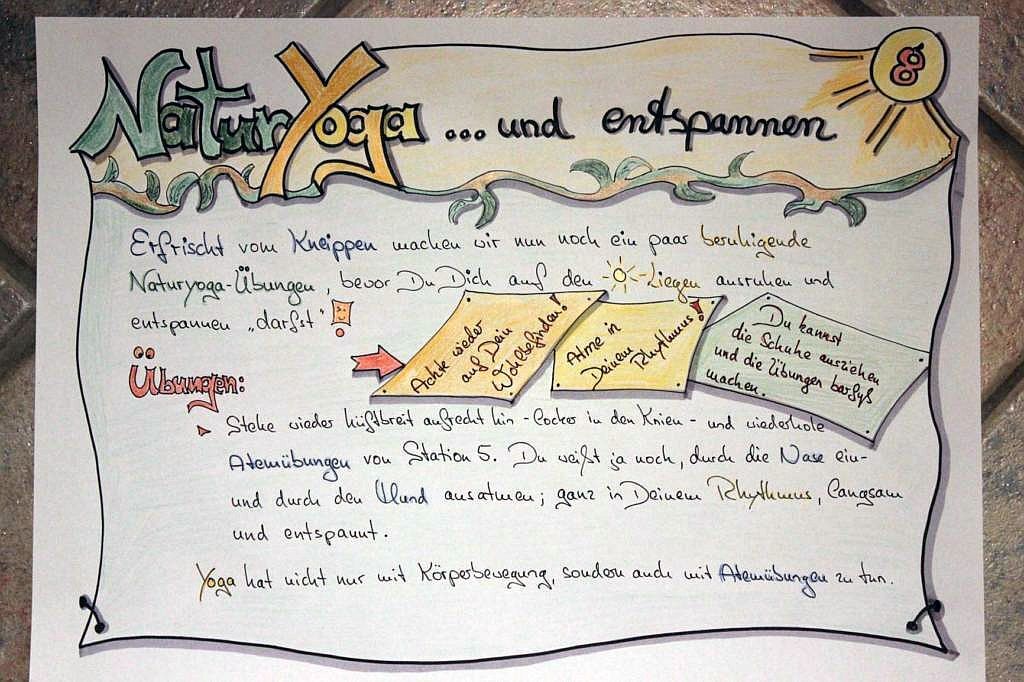 NaturYoga ... und entspannen
8
Erfrischt vom Kneippen machen wir nun noch ein paar beruhigende
Naturyoga-Übungen, bevor Du Dich auf den -Liegen ausruhen und
entspannen „darfst"!
Achte wieder
auf Dein
Wohlbefinden!
Atme in
Deinem
Rhythmus!
Du kannst
die Schuhe ausziehen
und die Übungen barfuß
machen.
Übungen:
Stehe wieder hüftbreit aufrecht hin - locker in den Knien - und wiederhole
Atemübungen von Station 5. Du weißt ja noch, durch die Nase ein-
und durch den Mund ausatmen; ganz in Deinem Rhythmus, langsam
und entspannt.
Yoga hat nicht nur mit Körperbewegung, sondern auch mit Atemübungen zu tun.